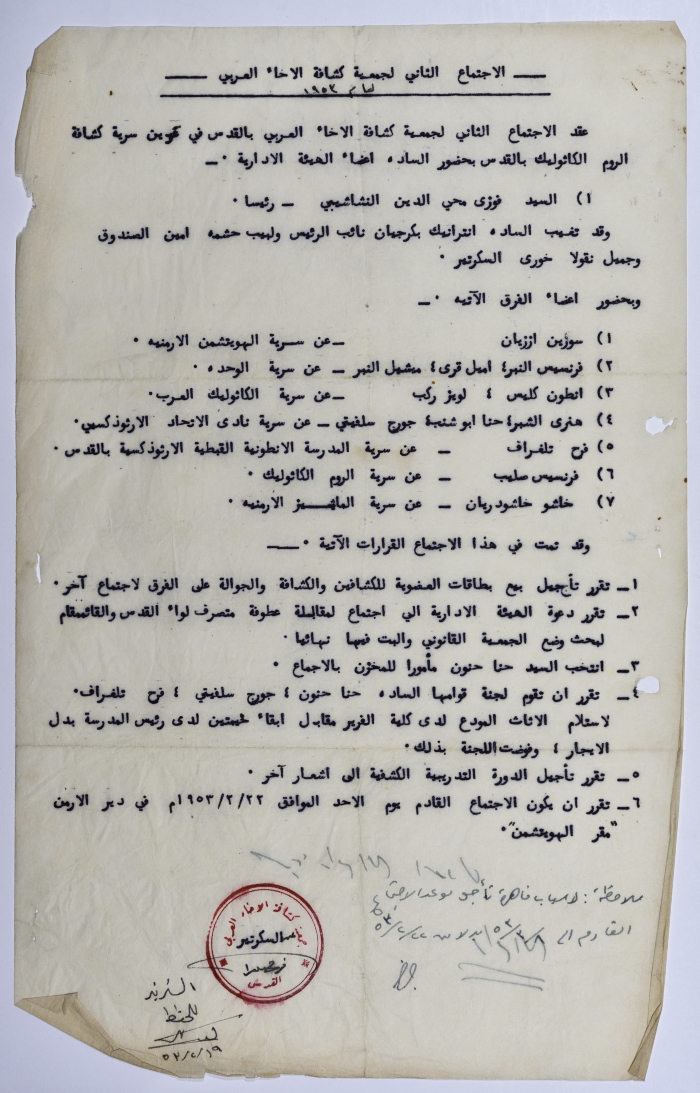 الاجتماع الثاني لجمعية كشافة الاخاء العربي
لعام ١٩٥٣
عقد الاجتماع الثاني لجمعية كشافة الاخاء العربي بالقدس في تكوين سرية كشافة
الروم الكاثوليك بالقدس بحضور الساده اعضاء الهيئة الادارية ٠ ــ
١) السيد فوزى محي الدين النشاشيبي ــ رئيسا ٠
وقد تغيب الساده انترانيك بكرجيان نائب الرئيس ولبيب حشمه امين الصندوق
وجميل نقولا خورى السكرتير ٠
وبحضور اعضاء الفرق الآتيه ٠ ــ
١) سوزين اززيان ــ عن سرية الهويتشمن الارمنيه ٠
٢) فرنسيس النبر٤ اميل قرى٤ ميشيل النبر ــ عن سرية الوحده ٠
٣) انطون كليس ٤ لويز ركب ــ عن سرية الكاثوليك العرب٠
٤) هنرى الشبر٤ حنا ابو شنب٤ جورج سلفيتي ــ عن سرية نادى الاتحاد الارثوذكسي٠
٥) فرح تلفراف ــ عن سرية المدرسة الانطونية القبطية الارثوذكسية بالقدس ٠
٦) فرنسيس صليب ــ عن سرية الروم الكاثوليك ٠
٧) خاشو خاشودريان ــ عن سرية الارمنيه ٠
وقد تمت في هذا الاجتماع القرارات الآتية ٠ ــ
١ــ تقرر تأجيل بيع بطاقات العضوية للكشافين والكشافة والجوالة على الفرق لاجتماع آخر ٠
٢ــ تقرر دعوة الهيئة الادارية الي اجتماع لمقابلة عطوفة متصرف لواء القدس والقائممقام
لبحث وضع الجمعية القانوني والبت فيها نهائيا ٠
٣ــ انتخب السيد حنا حنون مأمورا للمخزن بالاجماع ٠
٤ــ تقرر ان تقوم لجنة قوامها الساده حنا حنون ٤ جورج سلفيتي ٤ فرح تلفراف٠
لاستلام الاثاث المودع لدى كلية الفرير مقابل ابقاء خيمتين لدى رئيس المدرسة بدل
الايجار ٤ وفوضت اللجنة بذلك ٠
٥ــ تقرر تأجيل الدورة التدريبية الكشفية الى اشعار آخر ٠
٦ــ تقرر ان يكون الاجتماع القادم يوم الاحد الموافق ١٩٥٣/٢/٢٢م في دير الارمن
"مقر الهويتشمن"٠
ملاحظة : لاسباب قاهرة تأجل موعد الاجتماع
القادم الى بدلا من ٥٣/٢/٢٢
جمعية كشافة الاخاء العربي
السكرتير
القدس
للحفظ
٥٣/٢/١٩